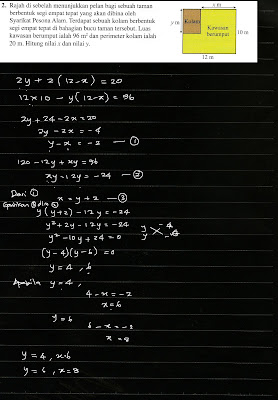 2. Rajah di sebelah menunjukkan pelan bagi sebuah taman
berbentuk segi empat tepat yang akan dibina oleh
Syarikat Pesona Alam. Terdapat sebuah kolam berbentuk
segi empat tepat di bahagian bucu taman tersebut. Luas
kawasan berumput ialah 96 m² dan perimeter kolam ialah
20 m. Hitung nilai x dan nilai y.
x m
y m
Kolam
Kawasan
berumput
10 m
12 m
2y + 2(12-x) = 20
12×10 - y(12-x) = 96
2y + 24 - 2x = 20
2y - 2x = -4
y - x = -2 — ①
120 - 12y + xy = 96
xy - 12y = -24 — ②
Dari ①
x = y + 2 — ③
Gantikan ③ dlm ②
y(y+2) - 12y = -24
y² + 2y - 12y = -24
y² - 10y + 24 = 0
y -4
y -6
(y-4)(y-6) = 0
y = 4, 6
Apabila y = 4,
4 - x = -2
x = 6
y = 6
6 - x = -2
x = 8
y = 4, x=6
y = 6, x = 8